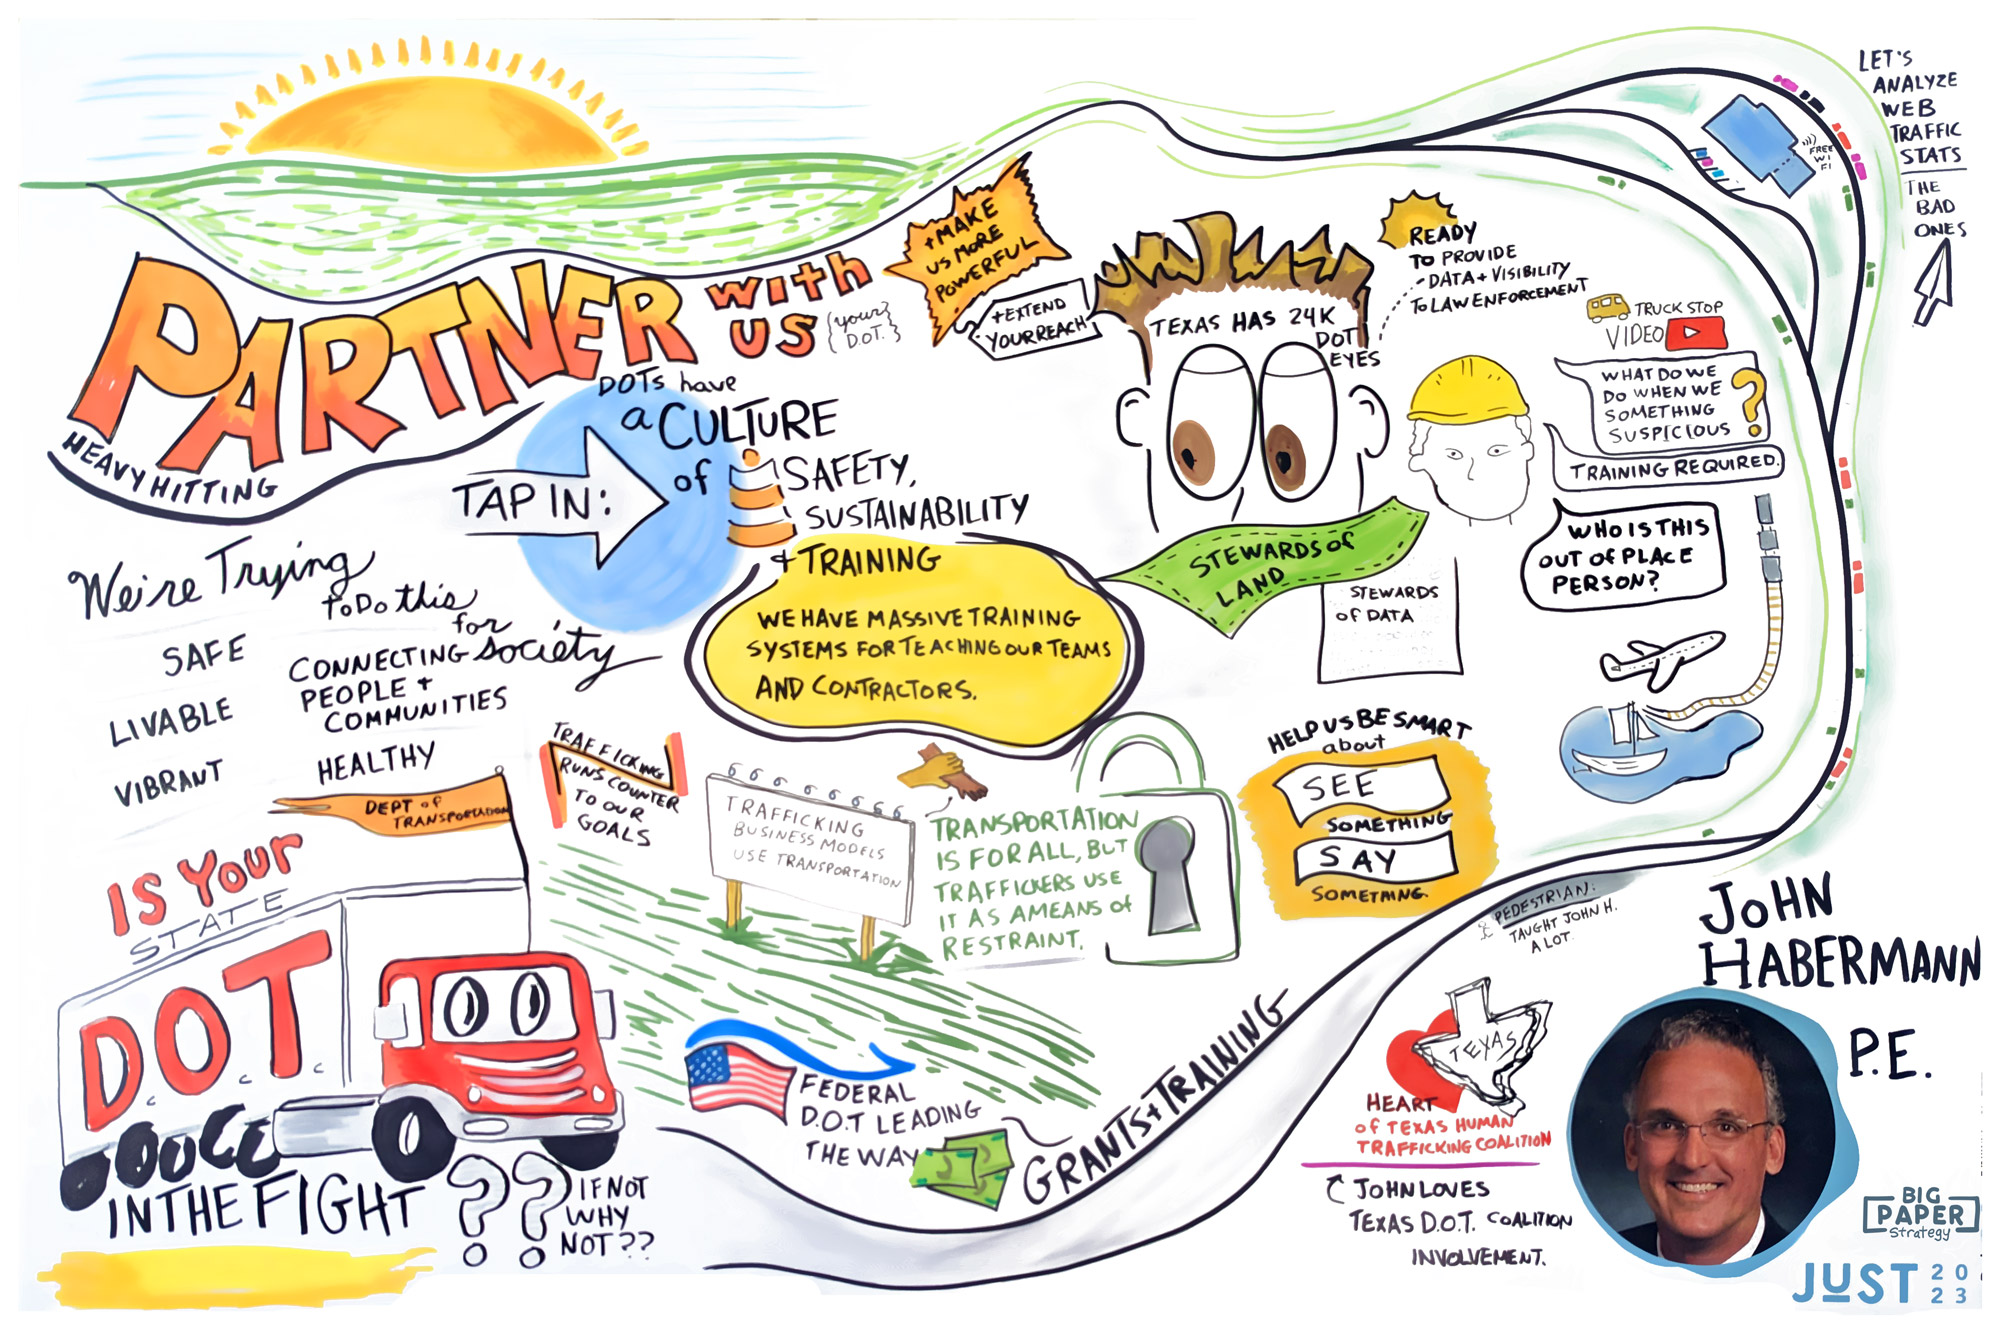 PARTNER
WITH
US
{your
D.O.T.}
HEAVY HITTING
+ MAKE
US MORE
POWERFUL
+ EXTEND
YOUR REACH
TAP IN:
DOTs have
a CULTURE
of SAFETY,
SUSTAINABILITY
+ TRAINING
WE HAVE MASSIVE TRAINING
SYSTEMS FOR TEACHING OUR TEAMS
AND CONTRACTORS.
We're Trying
to Do this
for
society
SAFE
LIVABLE
VIBRANT
CONNECTING
PEOPLE +
COMMUNITIES
HEALTHY
TEXAS HAS 24K
DOT
EYES
READY
TO PROVIDE
- DATA + VISIBILITY
TO LAW ENFORCEMENT
TRUCK STOP
VIDEO
WHAT DO WE
DO WHEN WE
SOMETHING
SUSPICIOUS
?
TRAINING REQUIRED.
WHO IS THIS
OUT OF PLACE
PERSON?
STEWARDS OF
LAND
STEWARDS
OF DATA
FREE
WI
FI
LET'S
ANALYZE
WEB
TRAFFIC
STATS
THE
BAD
ONES
DEPT of
TRANSPORTATION
IS YOUR
STATE
D.O.T
IN THE FIGHT ??
IF NOT
WHY
NOT??
TRAFFICKING
RUNS COUNTER
TO OUR
GOALS
TRAFFICKING
BUSINESS MODELS
USE TRANSPORTATION
TRANSPORTATION
IS FOR ALL, BUT
TRAFFICKERS USE
IT AS A MEANS of
RESTRAINT.
HELP US BE SMART
about
SEE
SOMETHING
SAY
SOMETHING.
FEDERAL
D.O.T LEADING
THE WAY
GRANTS + TRAINING
PEDESTRIAN:
TAUGHT JOHN H.
A LOT.
TEXAS
HEART
OF TEXAS HUMAN
TRAFFICKING COALITION
JOHN LOVES
TEXAS D.O.T. COALITION
INVOLVEMENT.
JOHN
HABERMANN
P.E.
BIG
PAPER
Strategy
JUST 20
23